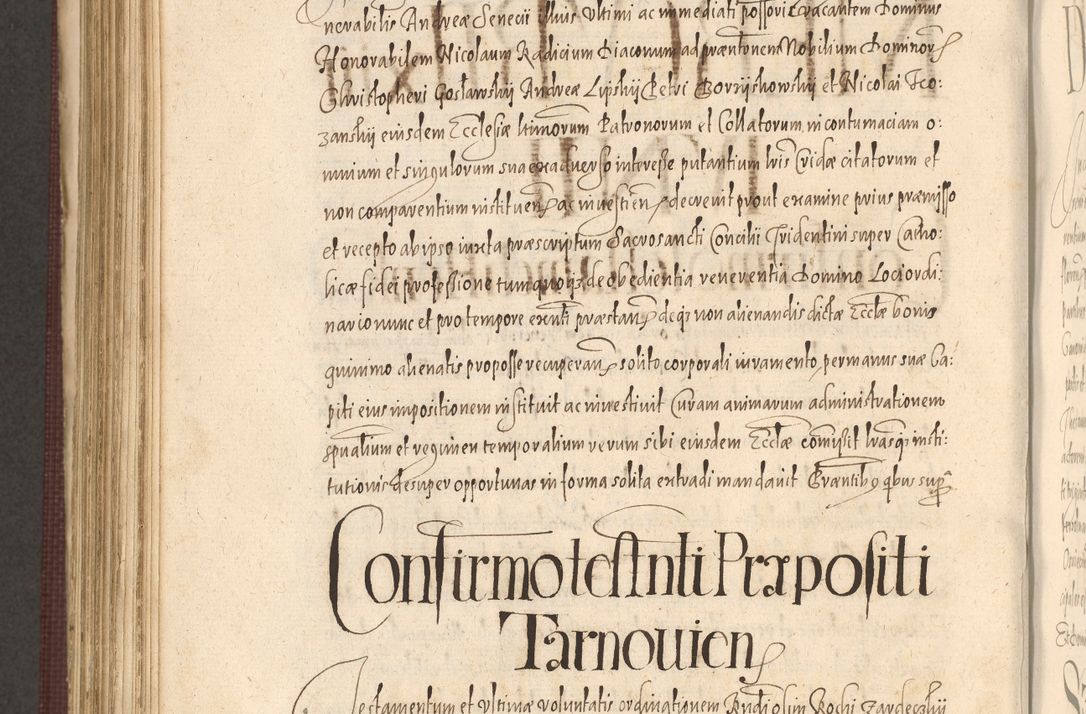 nerabilis Andreæ Senecii illius ultimi ac immediati possoris vacantem Dominus
Honorabilem Nicolaum Radicium Diaconum ad præntonem Nobilium Dominor
Christopheri Gosławskij Andreæ Lipskij Petri Borzijskowskij et Nicolai Tco:
zanskij eiusdem Ecclesiæ ltimorum Patronorum et Collatorum, in contumaciam o:
mnium et singulorum sua exaduerso interesse putantium lris Cridæ citatorum et
non comparentium instituen ac inuestien decreuit prout examine prius præmisso
et recepto ab ipso iuxta præscriptum Sacrosancti Concilii Tridentini super Catho:
licæ fidei professione tum quoq; de obedientia reuerentia Domino Loci ordi:
nario nunc et pro tempore exnti præstan deq; non alienandis dictæ Ecclæ bonis
quinimo alienatis pro posse recuperan solito corporali iuramento, per manus suæ Ca:
piti eius impositionem instituit ac inuestiuit Curam animarum administrationem
spualium et regimen temporalium rerum sibi eiusdem Ecclæ comisit lrasq; insti:
tutionis desuper opportunas in forma solita extradi mandauit Præntibq qbus supra
Confirmo testnti Præpositi
Tarnouien
Testamentum et ultimæ voluntatis ordinationem Rndi olim Rochi Zardeczkij